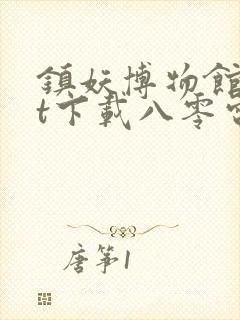 鎮妖博物館
t下載八零
唐筝1